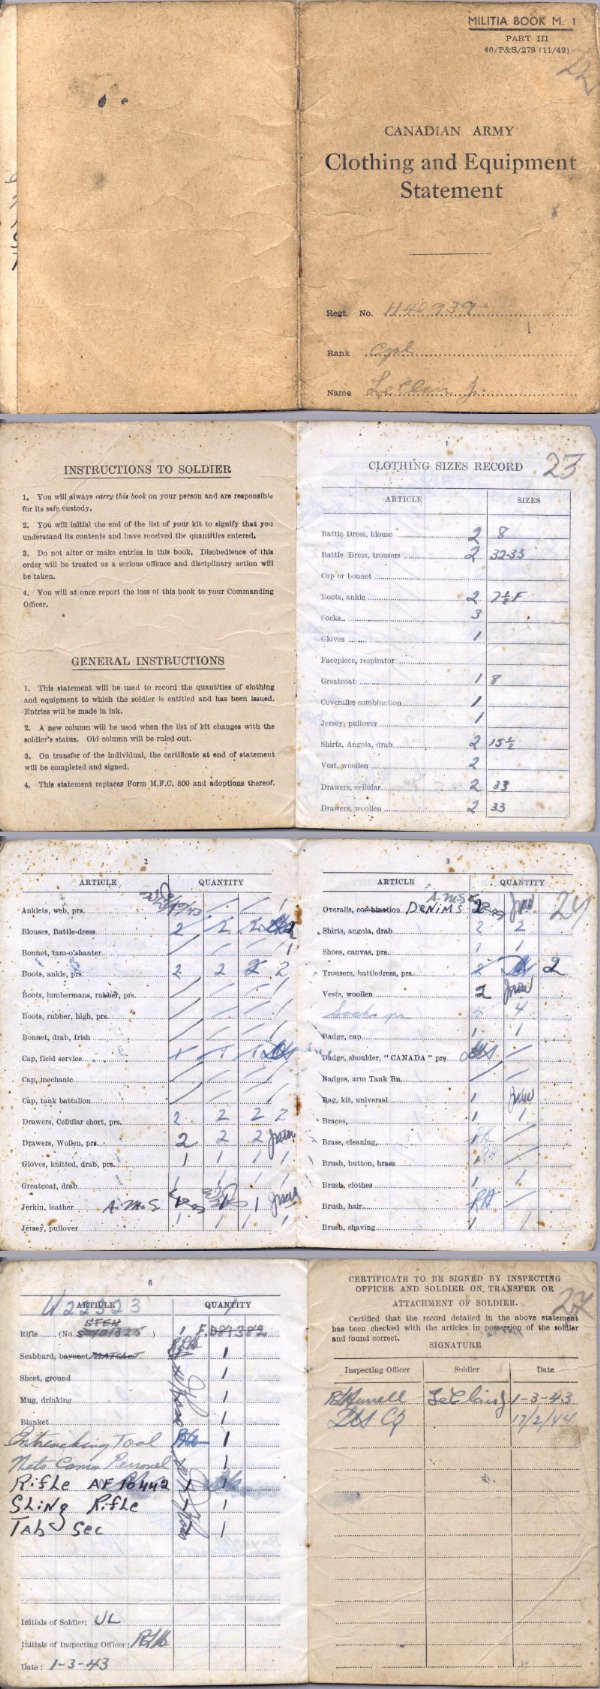 MILITIA BOOK M. 1
PART III
40/P&S/279 (11/42)
22
CANADIAN ARMY
Clothing and Equipment
Statement
Regt. No. H42939
Rank Cpl
Name LeClair J.
INSTRUCTIONS TO SOLDIER
1. You will always carry this book on your person and are responsible
for its safe custody.
2. You will initial the end of the list of your kit to signify that you
understand its contents and have received the quantities entered.
3. Do not alter or make entries in this book. Disobedience of this
order will be treated as a serious offence and disciplinary action will
be taken.
4. You will at once report the loss of this book to your Commanding
Officer.
GENERAL INSTRUCTIONS
1. This statement will be used to record the quantities of clothing
and equipment to which the soldier is entitled and has been issued.
Entries will be made in ink.
2. A new column will be used when the list of kit changes with the
soldier's status. Old column will be ruled out.
3. On transfer of the individual, the certificate at end of statement
will be completed and signed.
4. This statement replaces Form M.F.C. 800 and adoptions thereof.
CLOTHING SIZES RECORD 23
ARTICLE SIZES
Battle Dress, blouse 2 8
Battle Dress, trousers 2 32-33
Cap or bonnet
Boots, ankle 2 7½ F
Socks 3
Gloves 1
Facepiece, respirator
Greatcoat 1 8
Coveralls combination 1
Jersey, pullover 1
Shirts, Angola, drab 2 15½
Vest, woollen 2
Drawers, cellular 2 33
Drawers, woollen 2 33
ARTICLE QUANTITY
Anklets, web, prs.
Blouses, Battle-dress 2
Bonnet, tam-o'shanter
Boots, ankle, prs. 2 2 2 2
Boots, lumbermans, rubber, prs.
Boots, rubber, high, prs.
Bonnet, drab, Irish
Cap, field service
Cap, mechanic
Cap, tank battalion
Drawers, Cellular short, prs. 2 2 2 2
Drawers, Wollen, prs. 2 2 2
Gloves, knitted, drab, prs. 1 1 1 1
Greatcoat, drab 1 1 1 1
Jerkin, leather
Jersey, pullover 1 1 1 1
3
ARTICLE QUANTITY
24
Overalls, combination DENIMS 2
Shirts, angola, drab 2 2
Shoes, canvas, prs. 1 1
Trousers, battledress, prs. 2
Vests, woollen 2
Socks pr 4
Badge, cap 1 1
Badge, shoulder, "CANADA" prs
Badges, arm Tank Bn.
Bag, kit, universal 1
Braces 1 1
Brass, cleaning
Brush, button, brass
Brush, clothes 1 1
Brush, hair
Brush, shaving 1 1
8
ARTICLE QUANTITY
Rifle (No. )
Scabbard, bayonet 1
Sheet, ground 1
Mug, drinking 1
Blanket 1
Entrenching Tool 1
Nets Camo Personal 1
Rifle
Sling Rifle 1
Tab Sec 1
Initials of Soldier:
Initials of Inspecting Officer:
Date: 1-3-43
CERTIFICATE TO BE SIGNED BY INSPECTING
OFFICER AND SOLDIER ON, TRANSFER OR
ATTACHMENT OF SOLDIER.
Certified that the record detailed in the above statement
has been checked with the articles in possession of the soldier
and found correct.
SIGNATURE
Inspecting Officer Soldier Date
1-3-43
17/2/44